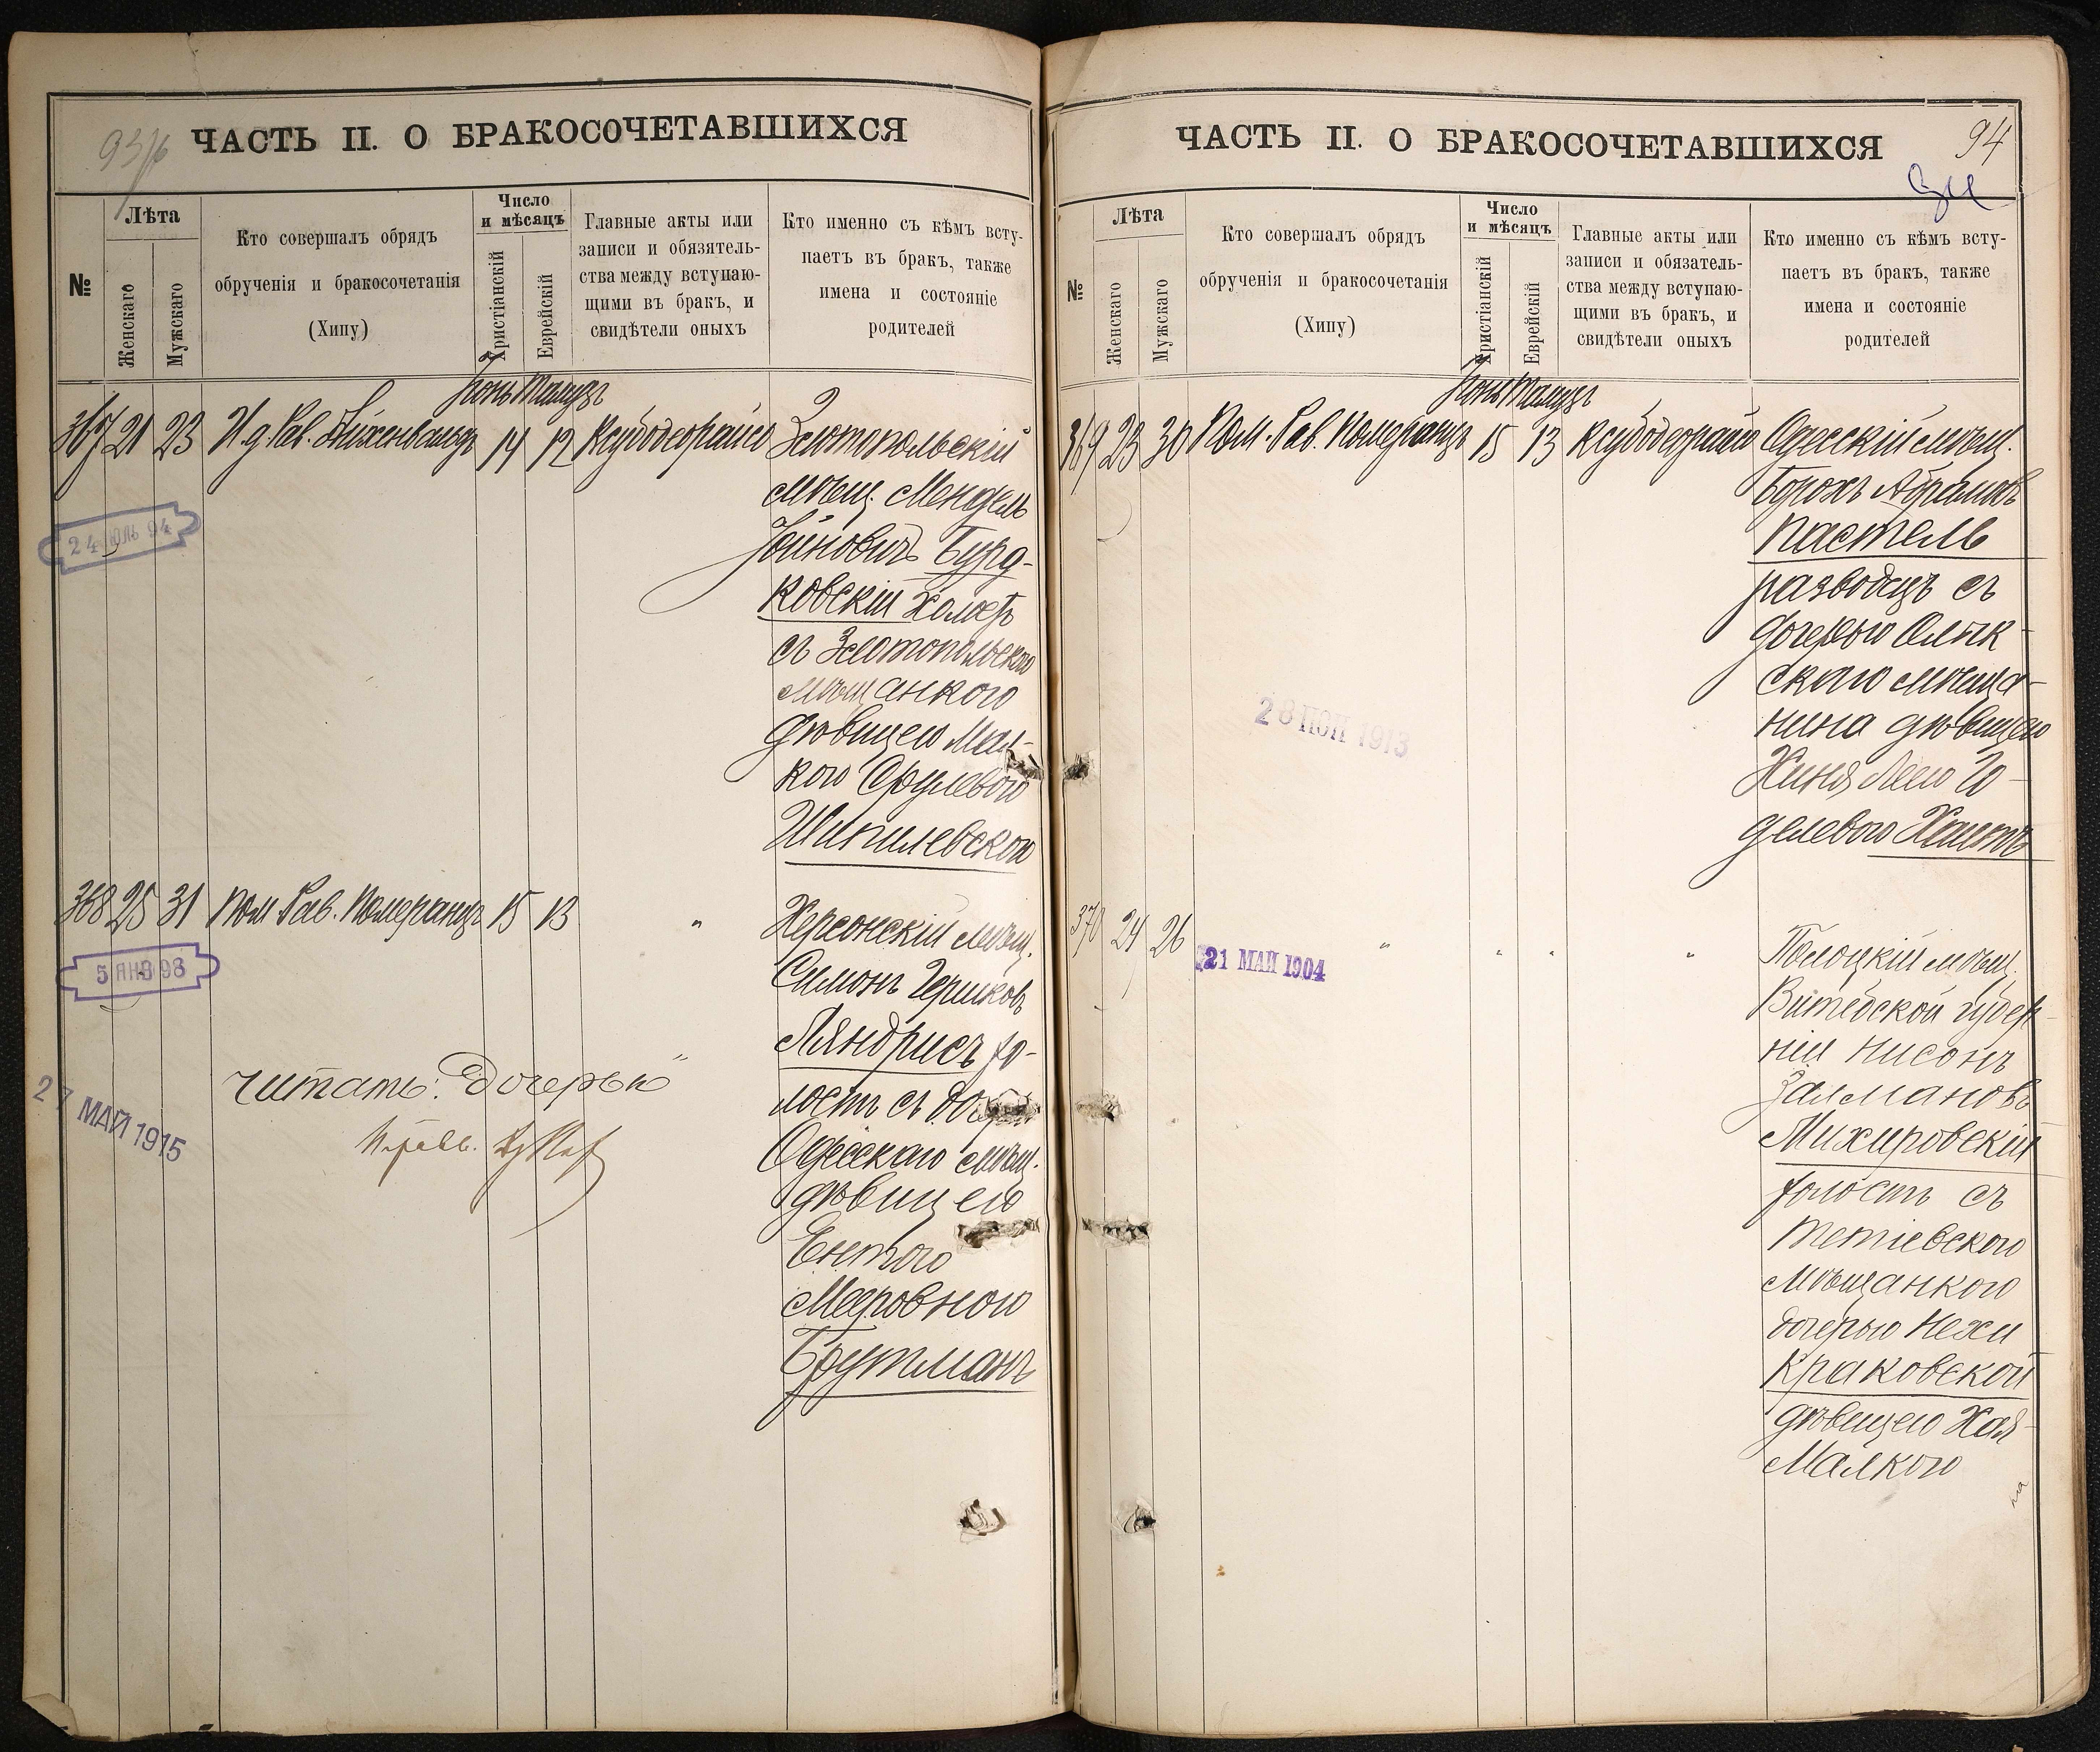 93/об
ЧАСТЬ II. О БРАКОСОЧЕТАВШИХСЯ
№
Лѣта
Женскаго
Мужскаго
Кто совершалъ обрядъ
обрученія и бракосочетанія
(Хипу)
Число
и мѣсяцъ
Христіанскій
Еврейскій
Главные акты или
записи и обязатель-
ства между вступаю-
щими въ бракъ, и
свидѣтели оныхъ
Кто именно съ кѣмъ всту-
паетъ въ бракъ, также
имена и состояніе
родителей
Іюнь Тамузъ
367 21 23 И. д. Рав. 14 12 Ксубодеорайсо
Златопольскій
мѣщ. Мендель
Іойновичъ Бурд-
ковскій холост
съ Златопольскою
мѣщанкою
дѣвицею Мал-
кою Срулевою
Шпилевскою
24 ЮЛЬ 94
368 25 31 Пом. Рав. Померанцъ 15 13 "
Херсонскій мѣщ.
Симонъ Гершковъ
Ляндрисъ хо-
лостъ съ
Одесскаго мѣщ.
дѣвицею
Ентою
Меровною
Брутманъ
5 ЯНВ 98
27 МАЙ 1915
читать: "дочерью"
94
ЧАСТЬ II. О БРАКОСОЧЕТАВШИХСЯ
№
Лѣта
Женскаго
Мужскаго
Кто совершалъ обрядъ
обрученія и бракосочетанія
(Хипу)
Число
и мѣсяцъ
Христіанскій
Еврейскій
Главные акты или
записи и обязатель-
ства между вступаю-
щими въ бракъ, и
свидѣтели оныхъ
Кто именно съ кѣмъ всту-
паетъ въ бракъ, также
имена и состояніе
родителей
Іюнь Тамузъ
369 23 30 Пом. Рав. Померанцъ 15 13 Ксубодеорайсо
Одесскій мѣщ.
Борохъ Абрамовъ
Пастель
разводецъ съ
дочерью Олик-
скаго мѣща-
нина дѣвицею
Хиня Леею Іо-
делевою
28 1913
370 24 26 " " " "
21 МАЙ 1904
Полоцкій мѣщ.
Витебской губер-
ніи Нисонъ
Залмановъ
Михировскій
холостъ съ
Тетіевскою
мѣщанкою
дочерью Нехи
Краковской
дѣвицею Хая-
Малкою